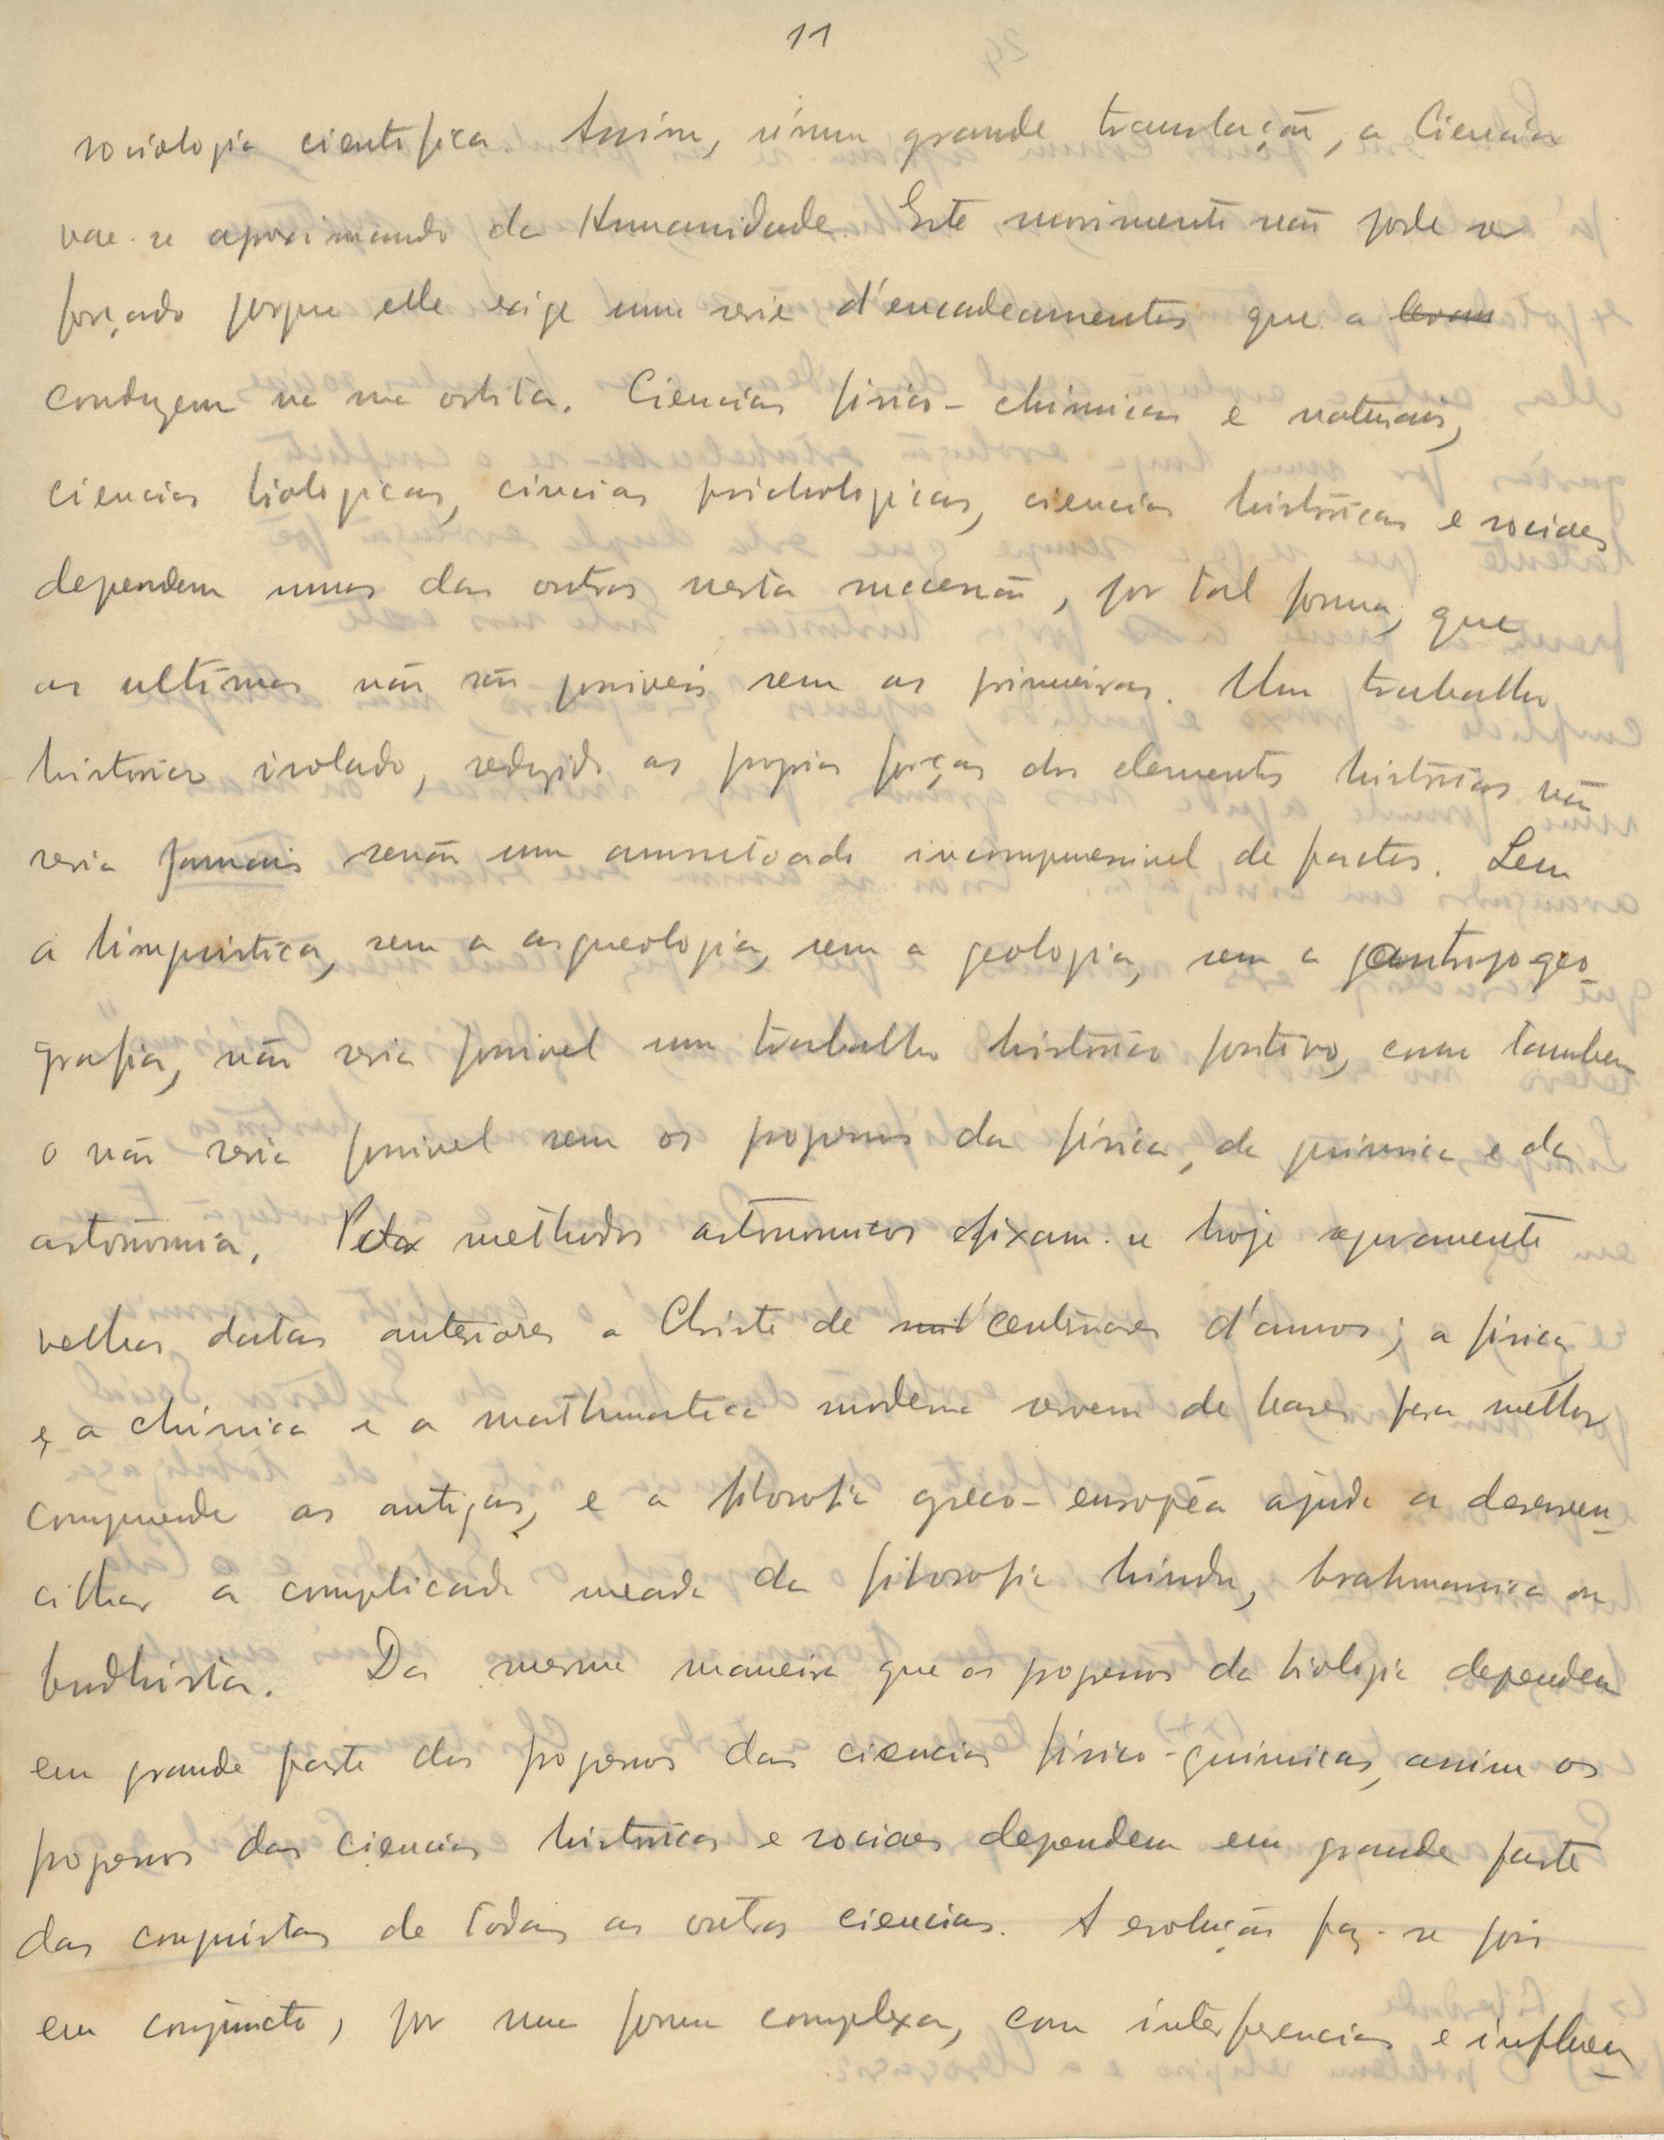 11
sociologia cientifica. Assim, n'uma grande translação, a Ciencia
vae-se aproximando da Humanidade. Este movimento não pode ser
forçado porque elle exige uma serie d'encadeamentos que a levam
conduzem na sua orbita. Ciencias fisico-chimicas e naturais,
ciencias biologicas, ciencias psichologicas, ciencias historicas e sociaes
dependem umas das outras nesta sucessão, por tal forma, que
as ultimas não são possiveis sem as primeiras. Um trabalho
historico isolado, reduzido as proprias forças dos elementos historicos não
seria jamais senão um amontoado incompreensivel de factos. Sem
a linguistica, sem a arqueologia, sem a geologia, sem a antropogeo-
grafia, não seria possivel um trabalho historico positivo, como tambem
o não seria possivel sem os progressos da fisica, da quimica e da
astronomia. Pelos methodos astronomicos fixam-se hoje seguramente
velhas datas anteriores a Christo de mil centenares d'annos; a fisica
e a chimica e a mathematica moderna servem de bases para melhor
comprehender as antigas, e a filosofia greco-européa ajuda a desenven-
cilhar a complicada meada da filosofia hindu, brahmanica ou
budhista. Da mesma maneira que os progressos da biologia dependem
em grande parte dos progressos das ciencias fisico-quimicas, assim os
progressos das ciencias historicas e sociaes dependem em grande parte
das conquistas de todas as outras ciencias. A evolução faz-se pois
em conjuncto, por uma forma complexa, com interferencias e influen-